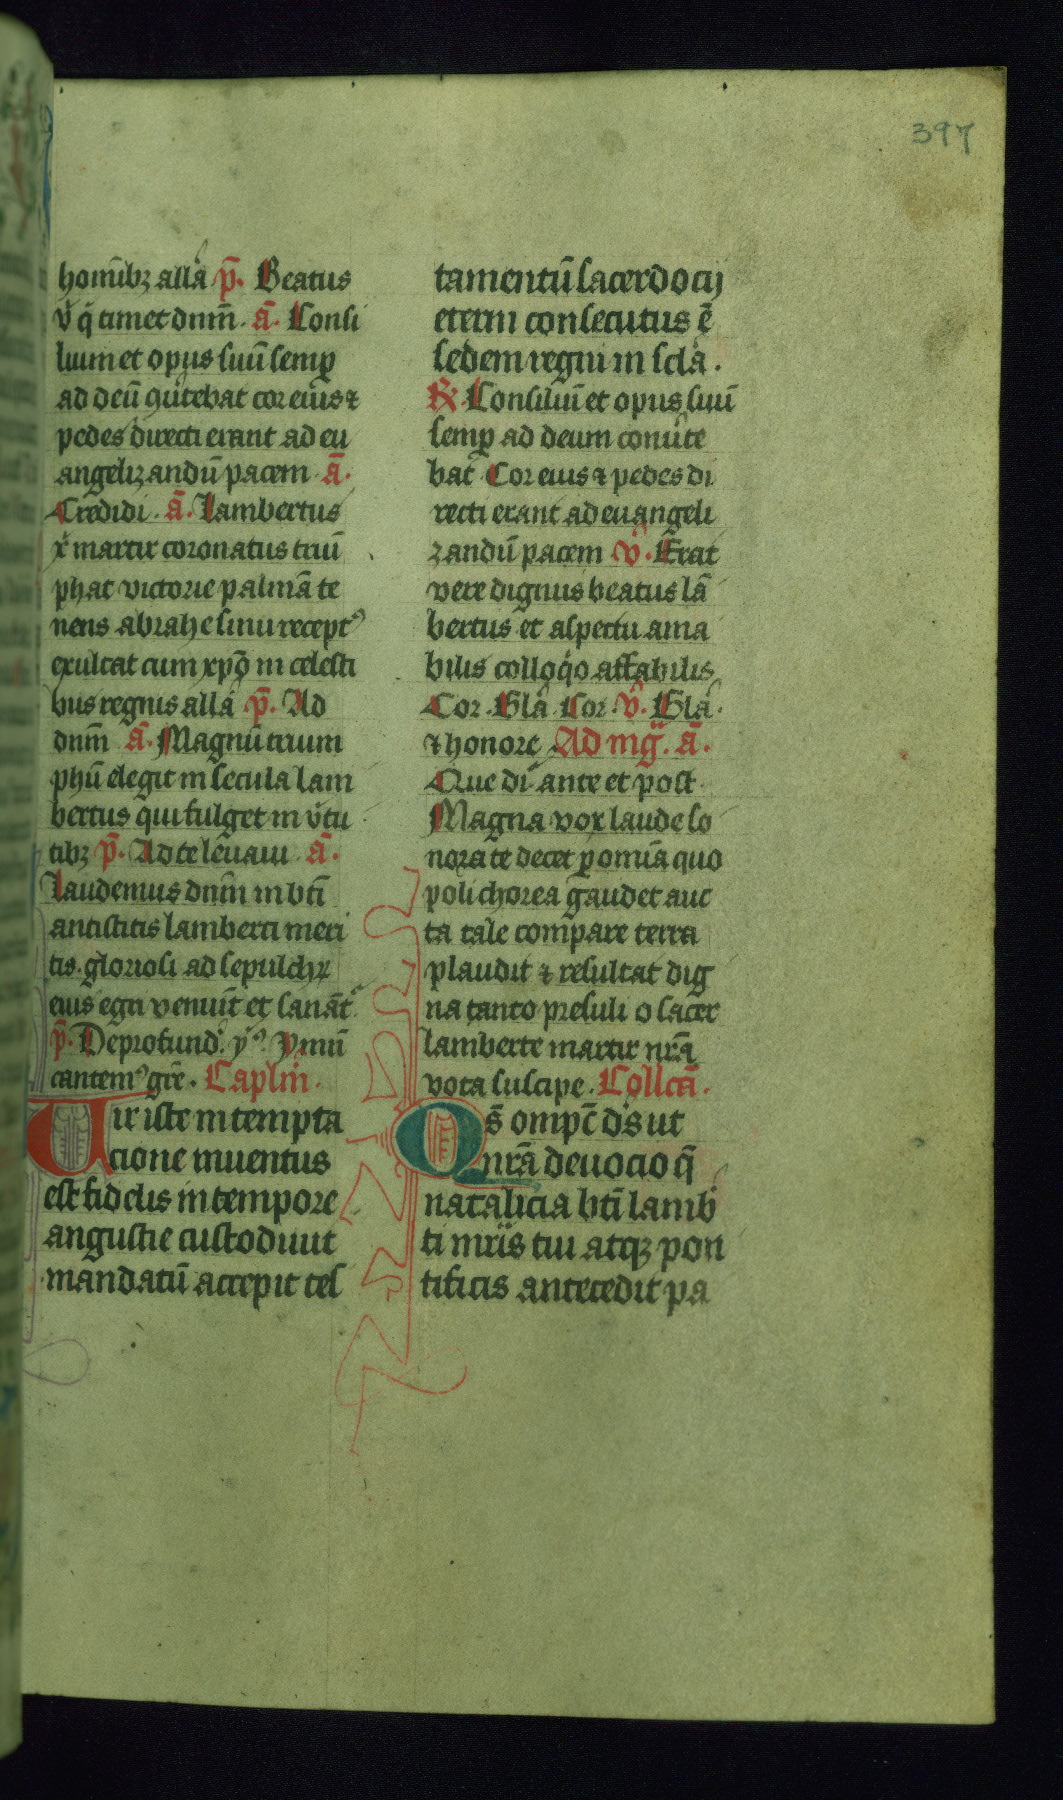 397
homībꝫ alla p̄. Beatus
v̄ q̄ timet dnm̄. ā. Consi
lium et opus suū semꝑ
ad deū ꝯūtebat cor eius ⁊
pedes directi erant ad eu
angelizandū pacem ā.
Credidi. ā. Lambertus
xͥ martir coronatus triū
phat victorie palmā te
nens abrahe sinu receptꝰ
exultat cum xp̄o in celesti
bus regnis alla p̄. Ad
dnm̄ ā. Magnū trium
phū elegit in secula lam
bertus qui fulget in v̄tu
tibꝫ p̄. Ad te leuaui ā.
Laudemus dnm̄ in bt̄i
antistitis lamberti meri
tis. gloriosi ad sepulchꝝ
eius egri veniūt et sanāt͛
p̄. De profund͛. yꝰ. Ymnū
cantemꝰ gr̄e. Caplm̄.
Vir iste in tempta
cione inuentus
est fidelis in tempore
angustie custodiuit
mandatū accepit tes
tamentū sacerdocij
eterni consecutus ē
sedem regni in scla.
℟. Consiliū et opus suū
semꝑ ad deum conūte
bat Cor eius ⁊ pedes di
recti erant ad euangeli
zandū pacem v̄. Erat
vere dignus beatus lā
bertus et aspectu ama
bilis colloqͦo affabilis
Cor. Gla. Cor. v̄. Gla.
⁊ honore Ad mg̅. ā.
Que di͛ ante et post
Magna vox laude so
nora te decet ꝑ omīa quo
poli chorea gaudet auc
ta tale compare terra
plaudit ⁊ resultat dig
na tanto presuli o sacer
lamberte martir nr̄a
vota suscipe. Collcā.
Qs̄ ompc̄ ds̄ ut
nr̄a deuocio q̄
natalicia bt̄i lamb͛
ti mr̄is tui atqꝫ pon
tificis antecedit pa